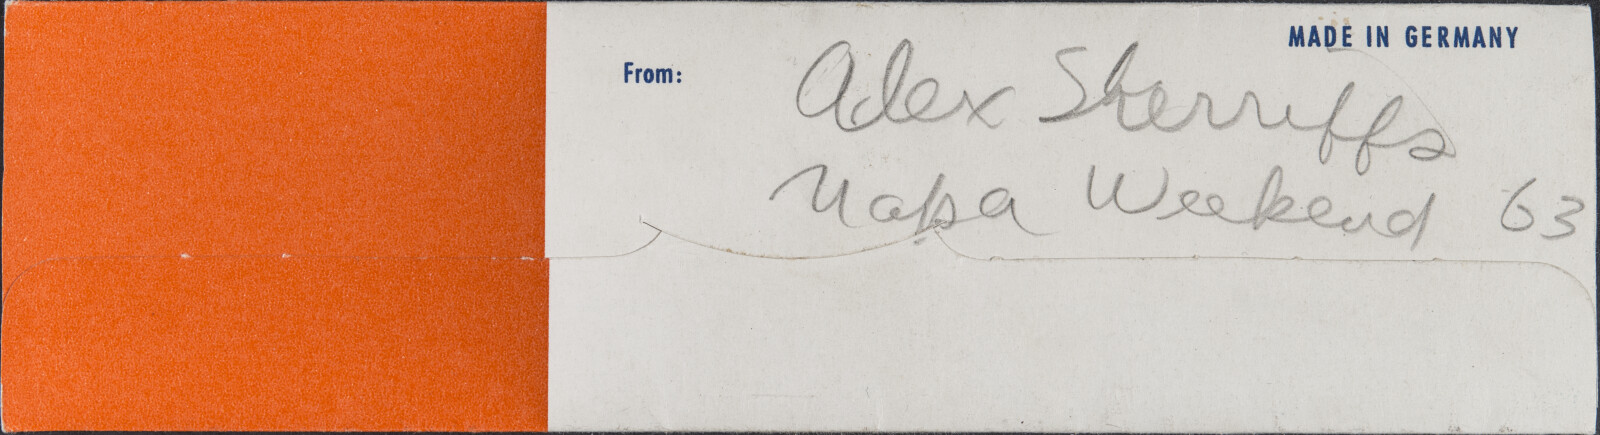 MADE IN GERMANY
From: Alex Sherriffs
Napa Weekend 63